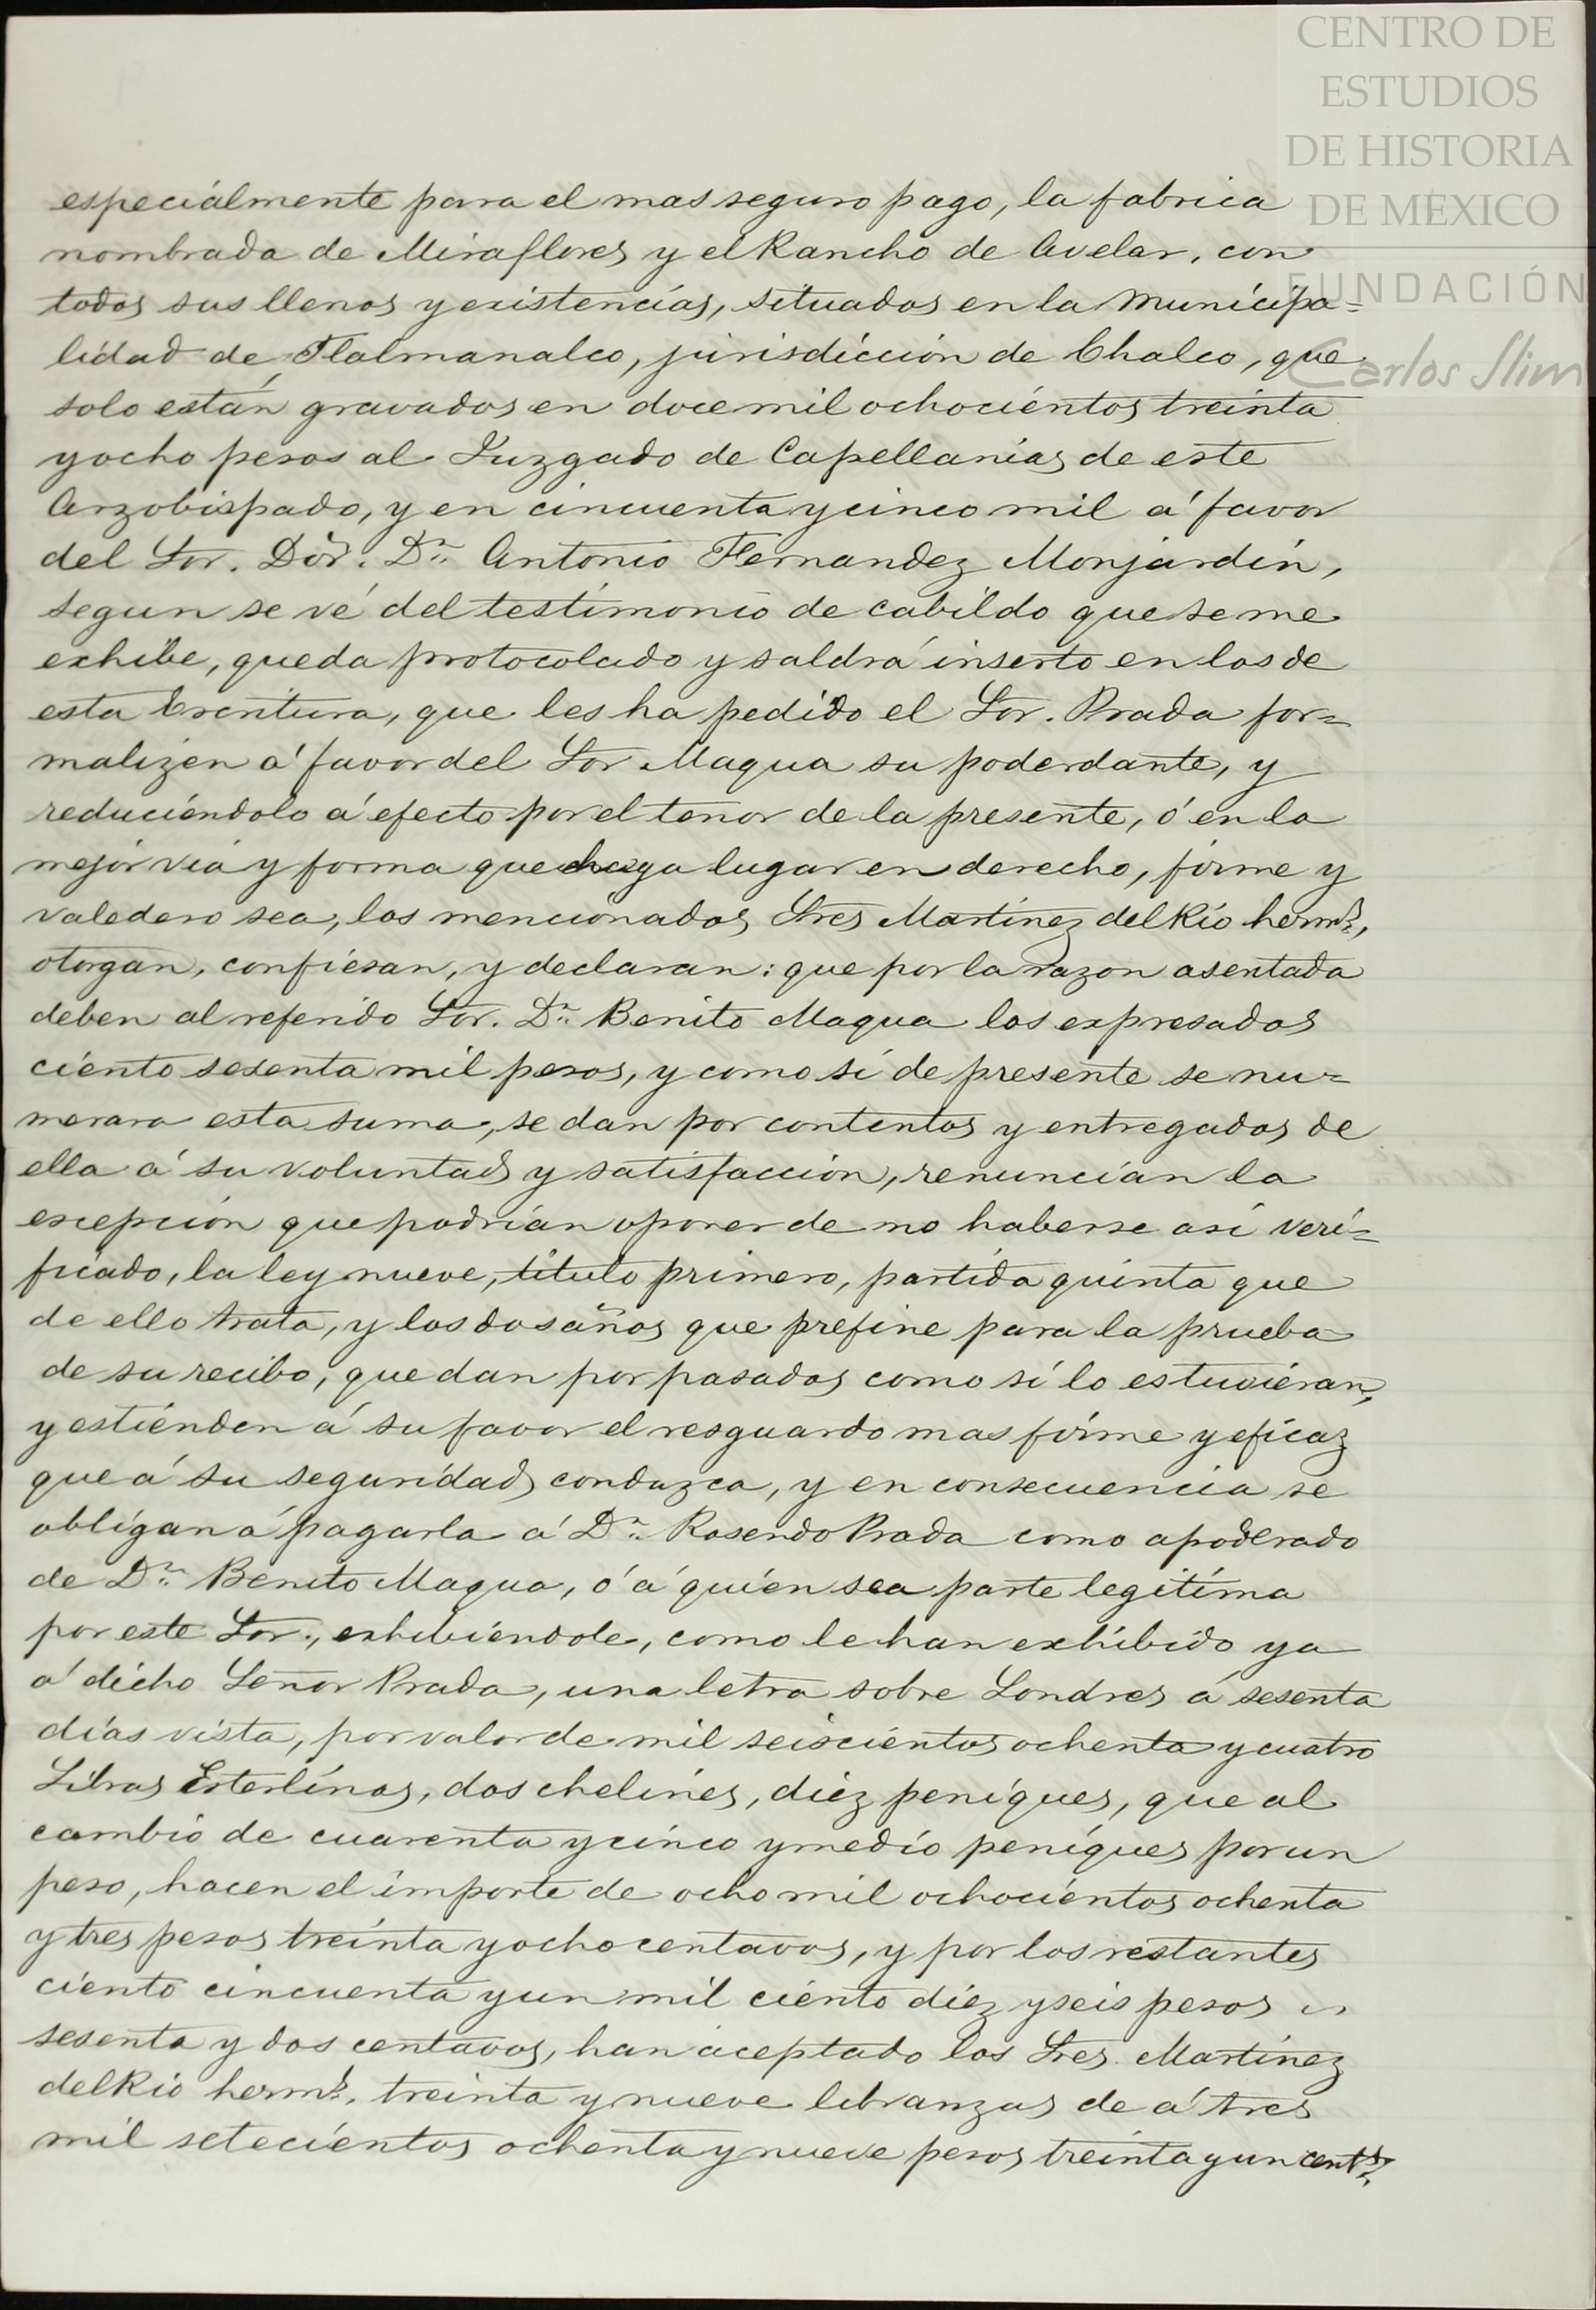 CENTRO DE
ESTUDIOS
DE HISTORIA
DE MEXICO
FUNDACIÓN
Carlos Slim
especialmente para el mas seguro pago, la fabrica
nombrada de Miraflores y el Rancho de Avelar, con
todos sus llenos y existencias, situados en la Municipa=
lidad de Tlalmanalco, jurisdiccion de Chalco, que
solo están gravados en doce mil ochocientos treinta
y ocho pesos al Juzgado de Capellanías de este
Arzobispado, y en cincuenta y cinco mil á favor
del Sor. Dor. Dn. Antonio Fernandez Monjardin,
segun se vé del testimonio de cabildo que se me
exhibe, queda protocolado y saldrá inserto en los de
esta Escritura, que les ha pedido el Sor. Prada for=
malizen á favor del Sor Maqua su poderdante, y
reduciéndolo á efecto por el tenor de la presente, ó en la
mejor via y forma que haya lugar en derecho, firme y
valedero sea, los mencionados Sres Martinez del Rio herms.,
otorgan, confiesan, y declaran: que por la razon asentada
deben al referido Sor. Dn. Benito Maqua los expresados
ciento sesenta mil pesos, y como si de presente se nu=
merara esta suma, se dan por contentos y entregados de
ella á su voluntad y satisfaccion, renuncian la
escepcion que podrian oponer de no haberse asi veri=
ficado, la ley nueve, título primero, partida quinta que
de ello trata, y los dos años que prefine para la prueba
de su recibo, que dan por pasados como si lo estuvieran,
y estienden á su favor el resguardo mas firme y eficaz
que á su seguridad conduzca, y en consecuencia se
obligan á pagarla á Dn. Rosendo Prada como apoderado
de Dn. Benito Maqua, ó á quien sea parte legitima
por este Sor., exhibiéndole, como le han exhibido ya
á dicho Señor Prada, una letra sobre Londres á sesenta
dias vista, por valor de mil seiscientos ochenta y cuatro
Libras Esterlinas, dos chelines, diez peniques, que al
cambio de cuarenta y cinco y medio peniques por un
peso, hacen el importe de ocho mil ochocientos ochenta
y tres pesos treinta y ocho centavos, y por los restantes
ciento cincuenta y un mil ciento diez y seis pesos
sesenta y dos centavos, han aceptado los Sres. Martinez
del Rio herms. treinta y nueve libranzas de á tres
mil setecientos ochenta y nueve pesos treinta y un cents.